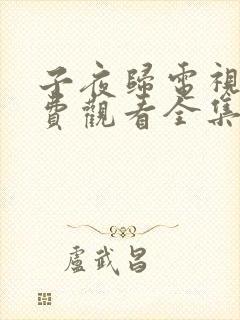 子夜歸電視
費觀看全集
盧武昌